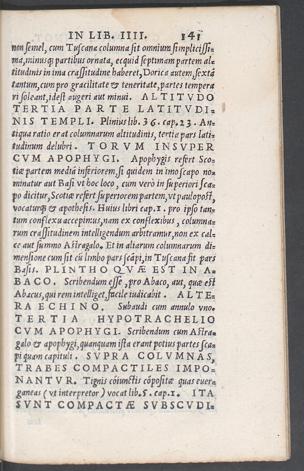 IN LIB. IIII. 141
non semel, cum Tuscana columna sit omnium simplicissi-
ma, minusq; partibus ornata, ecquid septimam partem al-
titudinis in ima crassitudine haberet, Dorica autem sextã
tantum, cum pro gracilitate & teneritate, partes tempera
ri soleant, id est augeri aut minui. ALTITVDO
TERTIA PARTE LATITVDI-
NIS TEMPLI. Plinius lib. 36. cap. 23. An-
tiqua ratio erat columnarum altitudinis, tertia pars lati-
tudinum delubri. TORVM INSVPER
CVM APOPHYGI. Apophygis refert Sco-
tiæ partem mediã inferiorem, si quidem in imo scapo no-
minatur aut Basi vt hoc loco, cum verò in superiori sca-
po dicitur, Scotiæ refert superiorem partem, vt paulopost,
vocaturq; & apothesis. Huius libri cap. 1. pro ipso tan-
tum conflexu accepimus, nam ex conflexibus, columna-
rum crassitudinem intelligendum arbitramur, non ex cal-
ce aut summo Astragalo. Et in aliarum columnarum di-
mensione cum sit cũ limbo pars scãpi, in Tuscana fit pars
Basis. PLINTHO QVÆ EST IN A-
BACO. Scribendum esse, pro Abaco, aut, quæ est
Abacus, qui rem intelliget, facile iudicabit. ALTE-
RA ECHINO, Subaudi cum annulo vno.
TERTIA HYPOTRACHELIO
CVM APOPHYGI. Scribendum cum Astra-
galo & apophygi, quanquam ista erant potius partes sca-
pi quam capituli. SVPRA COLVMNAS,
TRABES COMPACTILES IMPO-
NANTVR. Tignis cõiunctis cõpositæ quas euer-
ganeas (vt interpretor) vocat lib. 5. cap. 1. ITA
SVNT COMPACTÆ SVBSCVDI-